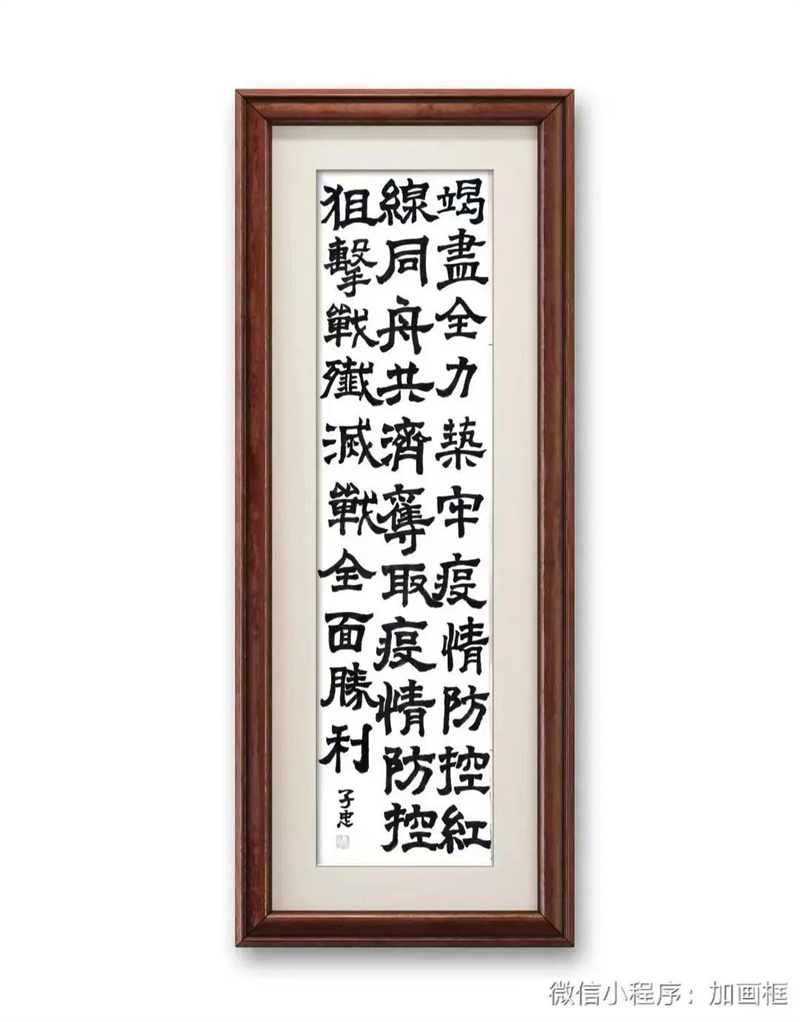 竭盡全力築牢疫情防控紅
線同舟共濟奪取疫情防控
狙擊戰殲滅戰全面勝利
子忠
微信小程序：加画框